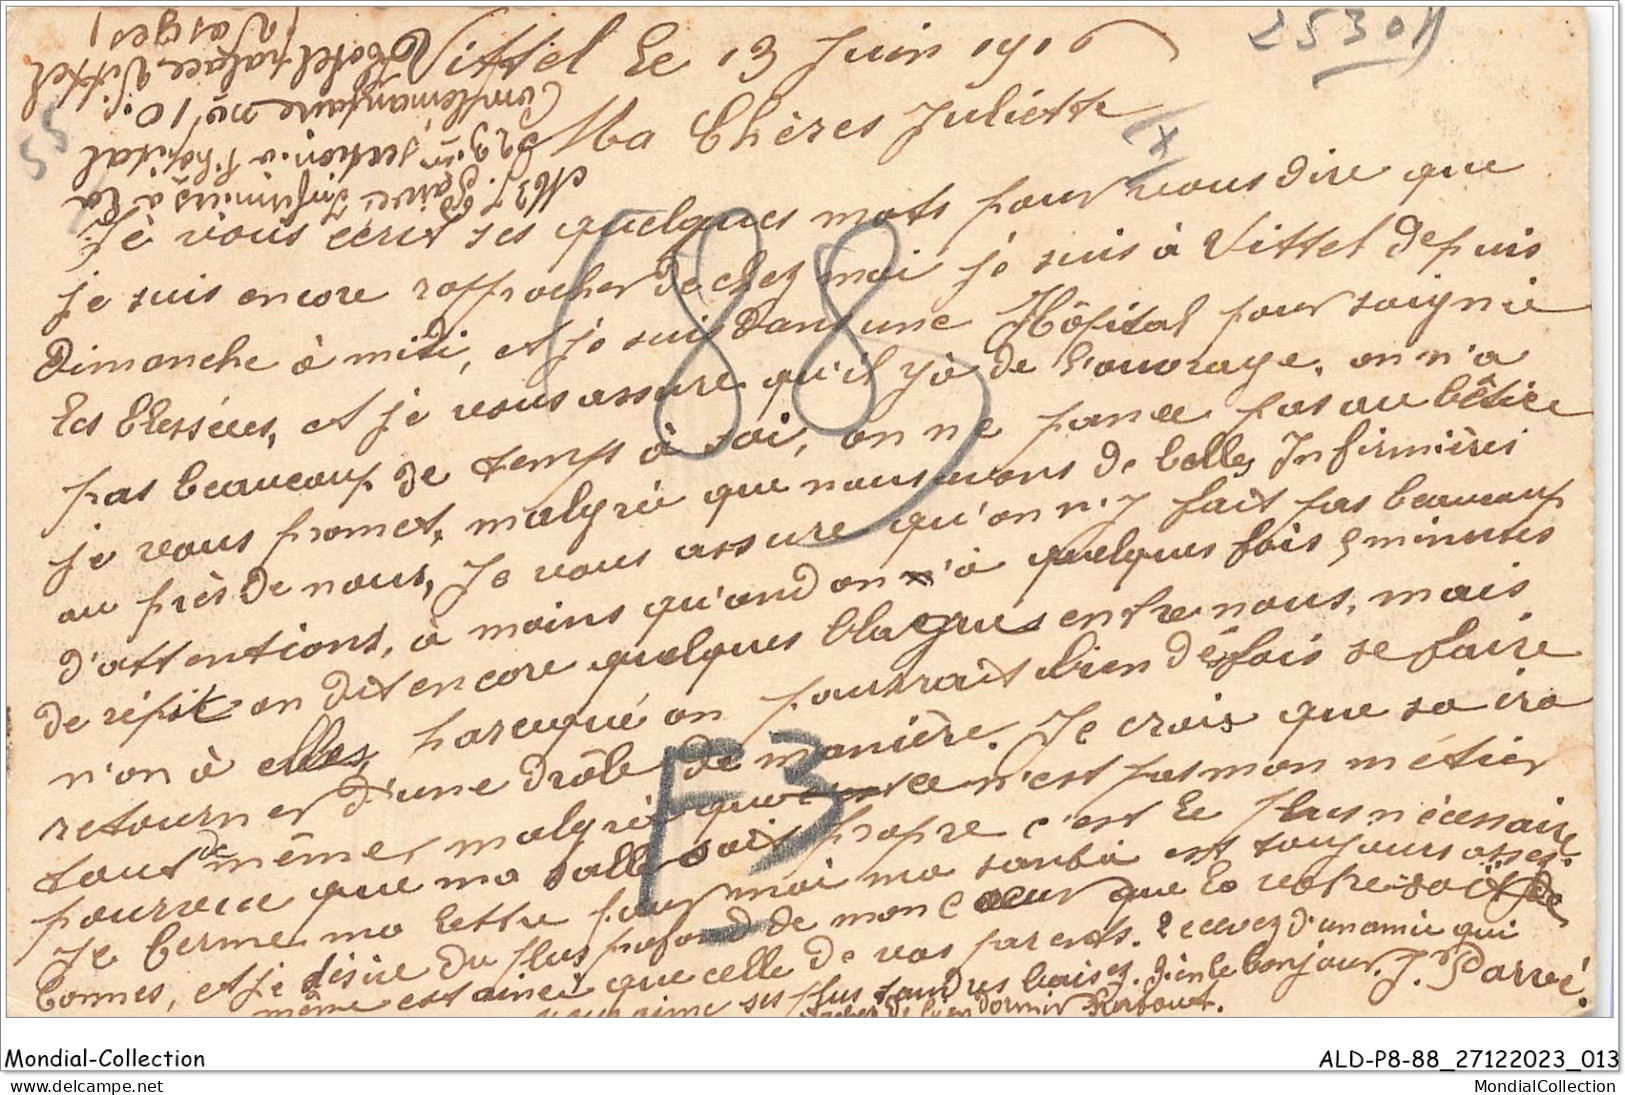 Vittel le 13 Juin 1916
25301
Ma Chères Juliette
Je vous écrit ses quelques mots pour vous dire que
je suis encore rapprocher de chez moi je suis à Vittel depuis
Dimanche à midi, et je suis dans une Hôpital pour soignie
les blesséees, et je vous assure qu'il y à de l'ouvrage, on n'a
pas beaucoup de temps à soi, on ne pense pas au bêtise
je vous promet, malgrée que nous avons de belles Infirmières
au près de nous, Je vous assure qu'on n'y fait pas beaucoup
d'attentions, à moins qu'and on n'a quelques fois 5 minutes
de répit on dit encore quelques blagues entre nous, mais
n'on à elles, parceque on pourrait bien dés fois se faire
retourner d'une drôle de manière. Je crois que sa ira
tout de même, malgrée que ce n'est pas mon métier
pourvue que ma salle soit propre c'est le plus nécessaire
Je ferme ma lettre pour moi ma santée est toujours asses
bonnes, et je désire du plus profond de mon coeur que la votre soit de
même est ainci que celle de vos parents. Recevez d'un amie qui
vous aime ses plus tendres baisez. Bien le bonjour. J. Parvé.
M. J. Parvé Infirmiers à la
23 section à l'hôpital
Complémentaire no 10
Hotel palace Vittel
Vosges
55
88
F3
Mondial-Collection
ALD-P8-88_27122023_013
www.delcampe.net
MondialCollection